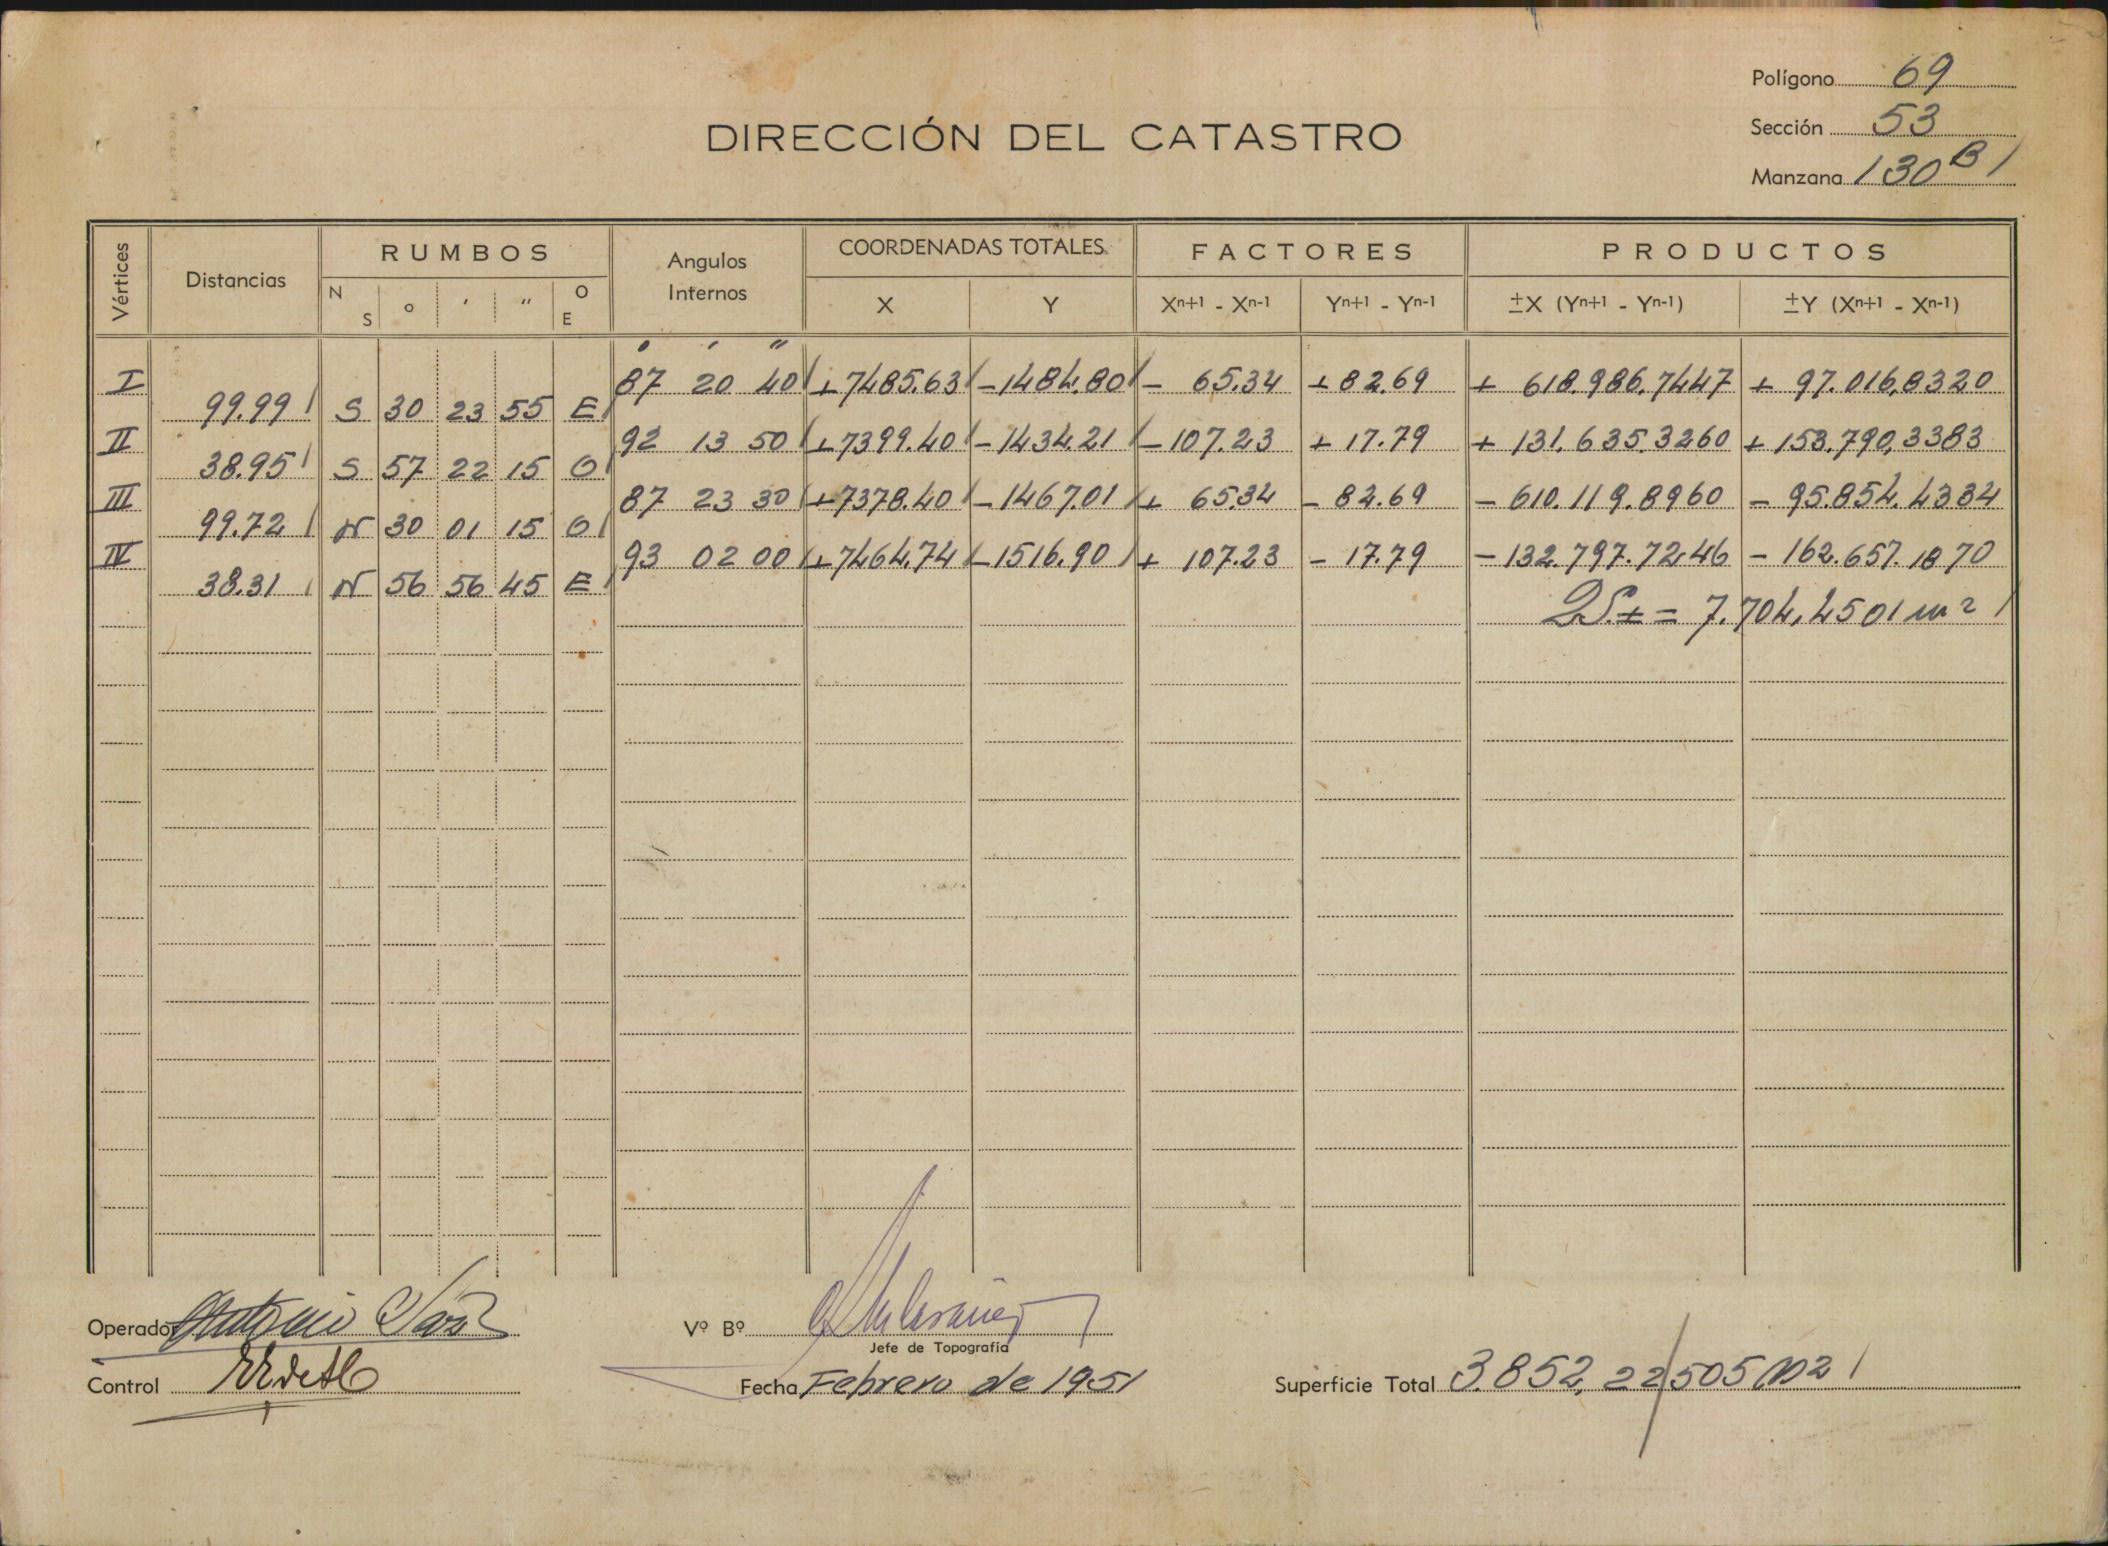 Polígono 69
Sección 53
Manzana 130 B
DIRECCIÓN DEL CATASTRO
Vértices Distancias RUMBOS Angulos Internos COORDENADAS TOTALES FACTORES PRODUCTOS
N S o ' " O E X Y Xn+1 - Xn-1 Yn+1 - Yn-1 ±X (Yn+1 - Yn-1) ±Y (Xn+1 - Xn-1)
° ' "
I 87 20 40 +7485.63 -1484.80 - 65.34 +82.69 + 618.986,7447 + 97.016,8320
99.99 S 30 23 55 E
II 92 13 50 +7399.40 -1434.21 -107.23 + 17.79 + 131.635.3260 + 153.790,3383
38.95 S 57 22 15 O
III 87 23 30 +7378.40 -1467.01 + 65.34 - 82.69 - 610.119.8960 - 95.854.4334
99.72 N 30 01 15 O
IV 93 02 00 +7464.74 -1516.90 + 107.23 - 17.79 -132.797.7246 - 162.657.1870
38.31 N 56 56 45 E
2S.± = 7.704,4501 m2
Operador Antonio
Vº Bº
Jefe de Topografía
Control
Fecha Febrero de 1951
Superficie Total 3.852,22/505 m2